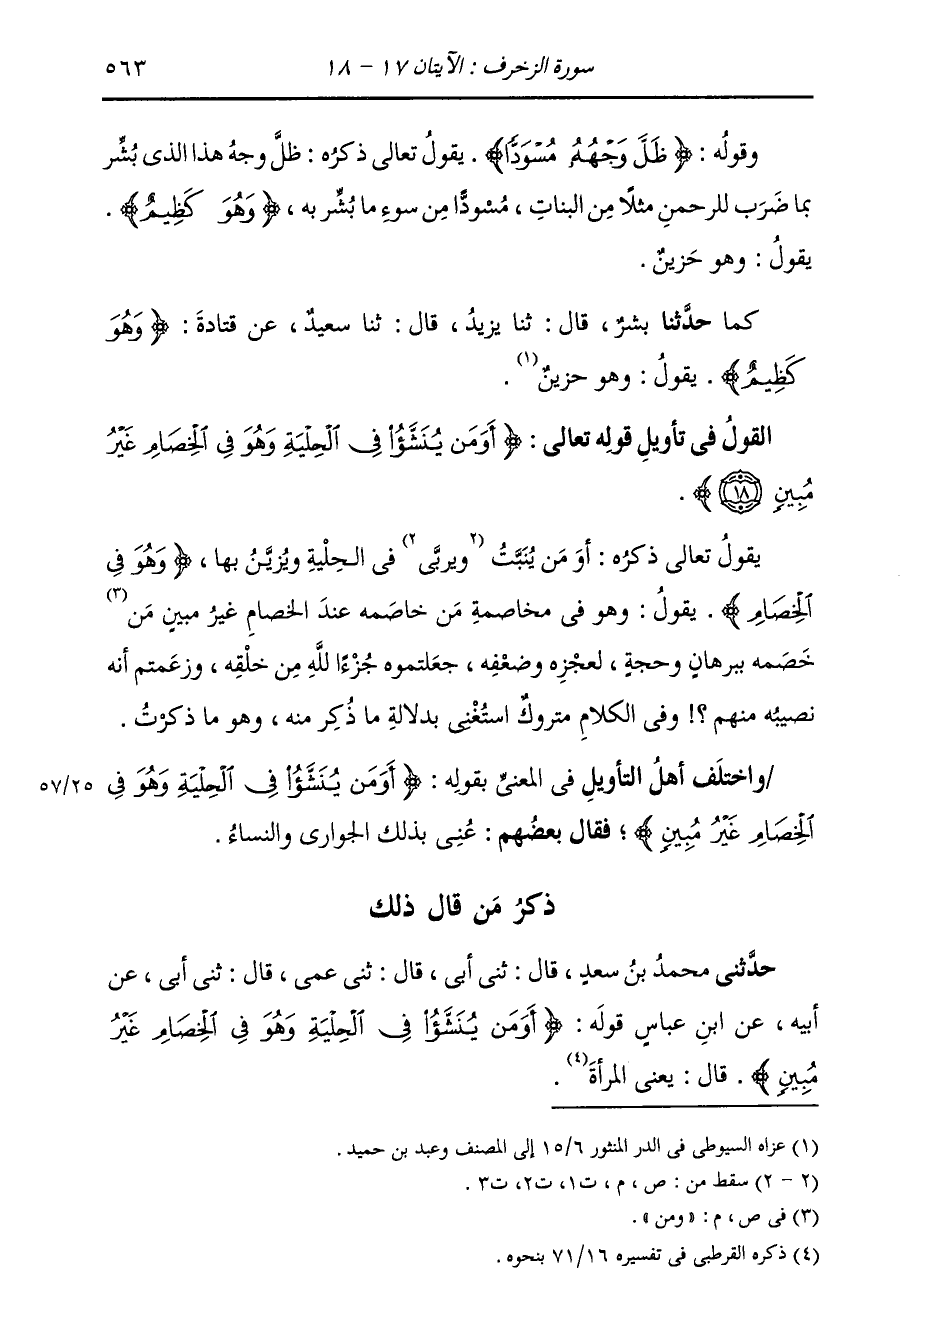 سورة الزخرف : الآيتان ١٧ - ١٨ ٥٦٣
وقولُه : ﴿ ظَلَّ وَجْهُهُ مُسْوَدًّا﴾ . يقولُ تعالى ذكرُه : ظلَّ وجهُ هذا الذى بُشِّر
بما ضَرَب للرحمنِ مثلًا مِن البناتِ ، مُسْودًّا مِن سوءِ ما بُشِّر به ، ﴿ وَهُوَ كَظِيمٌ﴾ .
يقولُ : وهو حَزينٌ .
كما حدَّثنا بشرٌ ، قال : ثنا يزيدُ ، قال : ثنا سعيدٌ ، عن قتادةَ : ﴿ وَهُوَ
كَظِيمٌ﴾ . يقولُ : وهو حزينٌ(١) .
القولُ فى تأويلِ قولِه تعالى : ﴿ أَوَمَن يُنَشَّؤُاْ فِى ٱلْحِلْيَةِ وَهُوَ فِى ٱلْخِصَامِ غَيْرُ
مُبِينٍ ١٨ ﴾ .
يقولُ تعالى ذكرُه : أوَ مَن يُنَبَّتُ (٢ويربَّى٢) فى الحِلْيةِ ويُزيَّنُ بها ، ﴿ وَهُوَ فِى
ٱلْخِصَامِ ﴾ . يقولُ : وهو فى مخاصمةِ مَن خاصَمه عندَ الخصامِ غيرُ مبينٍ مَن(٣)
خَصَمه ببرهانٍ وحجةٍ ، لعجْزِه وضعْفِه ، جعَلتموه جُزْءًا للَّهِ مِن خلْقِه ، وزعَمتم أنه
نصيبُه منهم ؟! وفى الكلامِ متروكٌ استُغْنِى بدلالةِ ما ذُكِر منه ، وهو ما ذكرْتُ .
/واختلَف أهلُ التأويلِ فى المعنىِّ بقولِه : ﴿ أَوَمَن يُنَشَّؤُاْ فِى ٱلْحِلْيَةِ وَهُوَ فِى ٥٧/٢٥
ٱلْخِصَامِ غَيْرُ مُبِينٍ ﴾ ؛ فقال بعضُهم : عُنِى بذلك الجوارى والنساءُ .
ذكرُ مَن قال ذلك
حدَّثنى محمدُ بنُ سعدٍ ، قال : ثنى أبى ، قال : ثنى عمى ، قال : ثنى أبى ، عن
أبيه ، عن ابنِ عباسٍ قولَه : ﴿ أَوَمَن يُنَشَّؤُاْ فِى ٱلْحِلْيَةِ وَهُوَ فِى ٱلْخِصَامِ غَيْرُ
مُبِينٍ ﴾ . قال : يعنى المرأةَ(٤) .
(١) عزاه السيوطى فى الدر المنثور ١٥/٦ إلى المصنف وعبد بن حميد .
(٢ - ٢) سقط من : ص ، م ، ت١، ت٢، ت٣ .
(٣) فى ص ، م : « ومن » .
(٤) ذكره القرطبى فى تفسيره ٧١/١٦ بنحوه .